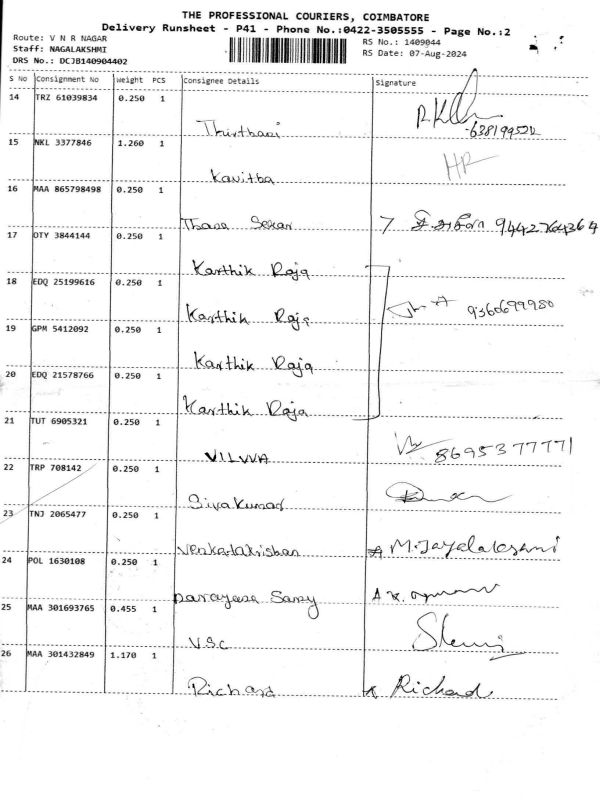 THE PROFESSIONAL COURIERS, COIMBATORE
Delivery Runsheet - P41 - Phone No.:0422-3505555 - Page No.:2
Route: V N R NAGAR
Staff: NAGALAKSHMI
DRS No.: DCJB140904402
RS No.: 1409044
RS Date: 07-Aug-2024
S No Consignment No Weight PCS Consignee Details Signature
14 TRZ 61039834 0.250 1
Thirthani
15 NKL 3377846 1.260 1 HR
Kavitha
16 MAA 865798498 0.250 1
Thana Sekar 9442764364
17 OTY 3844144 0.250 1
Karthik Raja
18 EDQ 25199616 0.250 1
Karthik Raja 9360699980
19 GPM 5412092 0.250 1
Karthik Raja
20 EDQ 21578766 0.250 1
Karthik Raja
21 TUT 6905321 0.250 1
VILVVA 8695377771
22 TRP 708142 0.250 1
Sivakumar
23 TNJ 2065477 0.250 1
Venkatakrishan M.Jayalakshmi
24 POL 1630108 0.250 1
Samy
25 MAA 301693765 0.455 1
V.S.C
26 MAA 301432849 1.170 1
Richard Richard